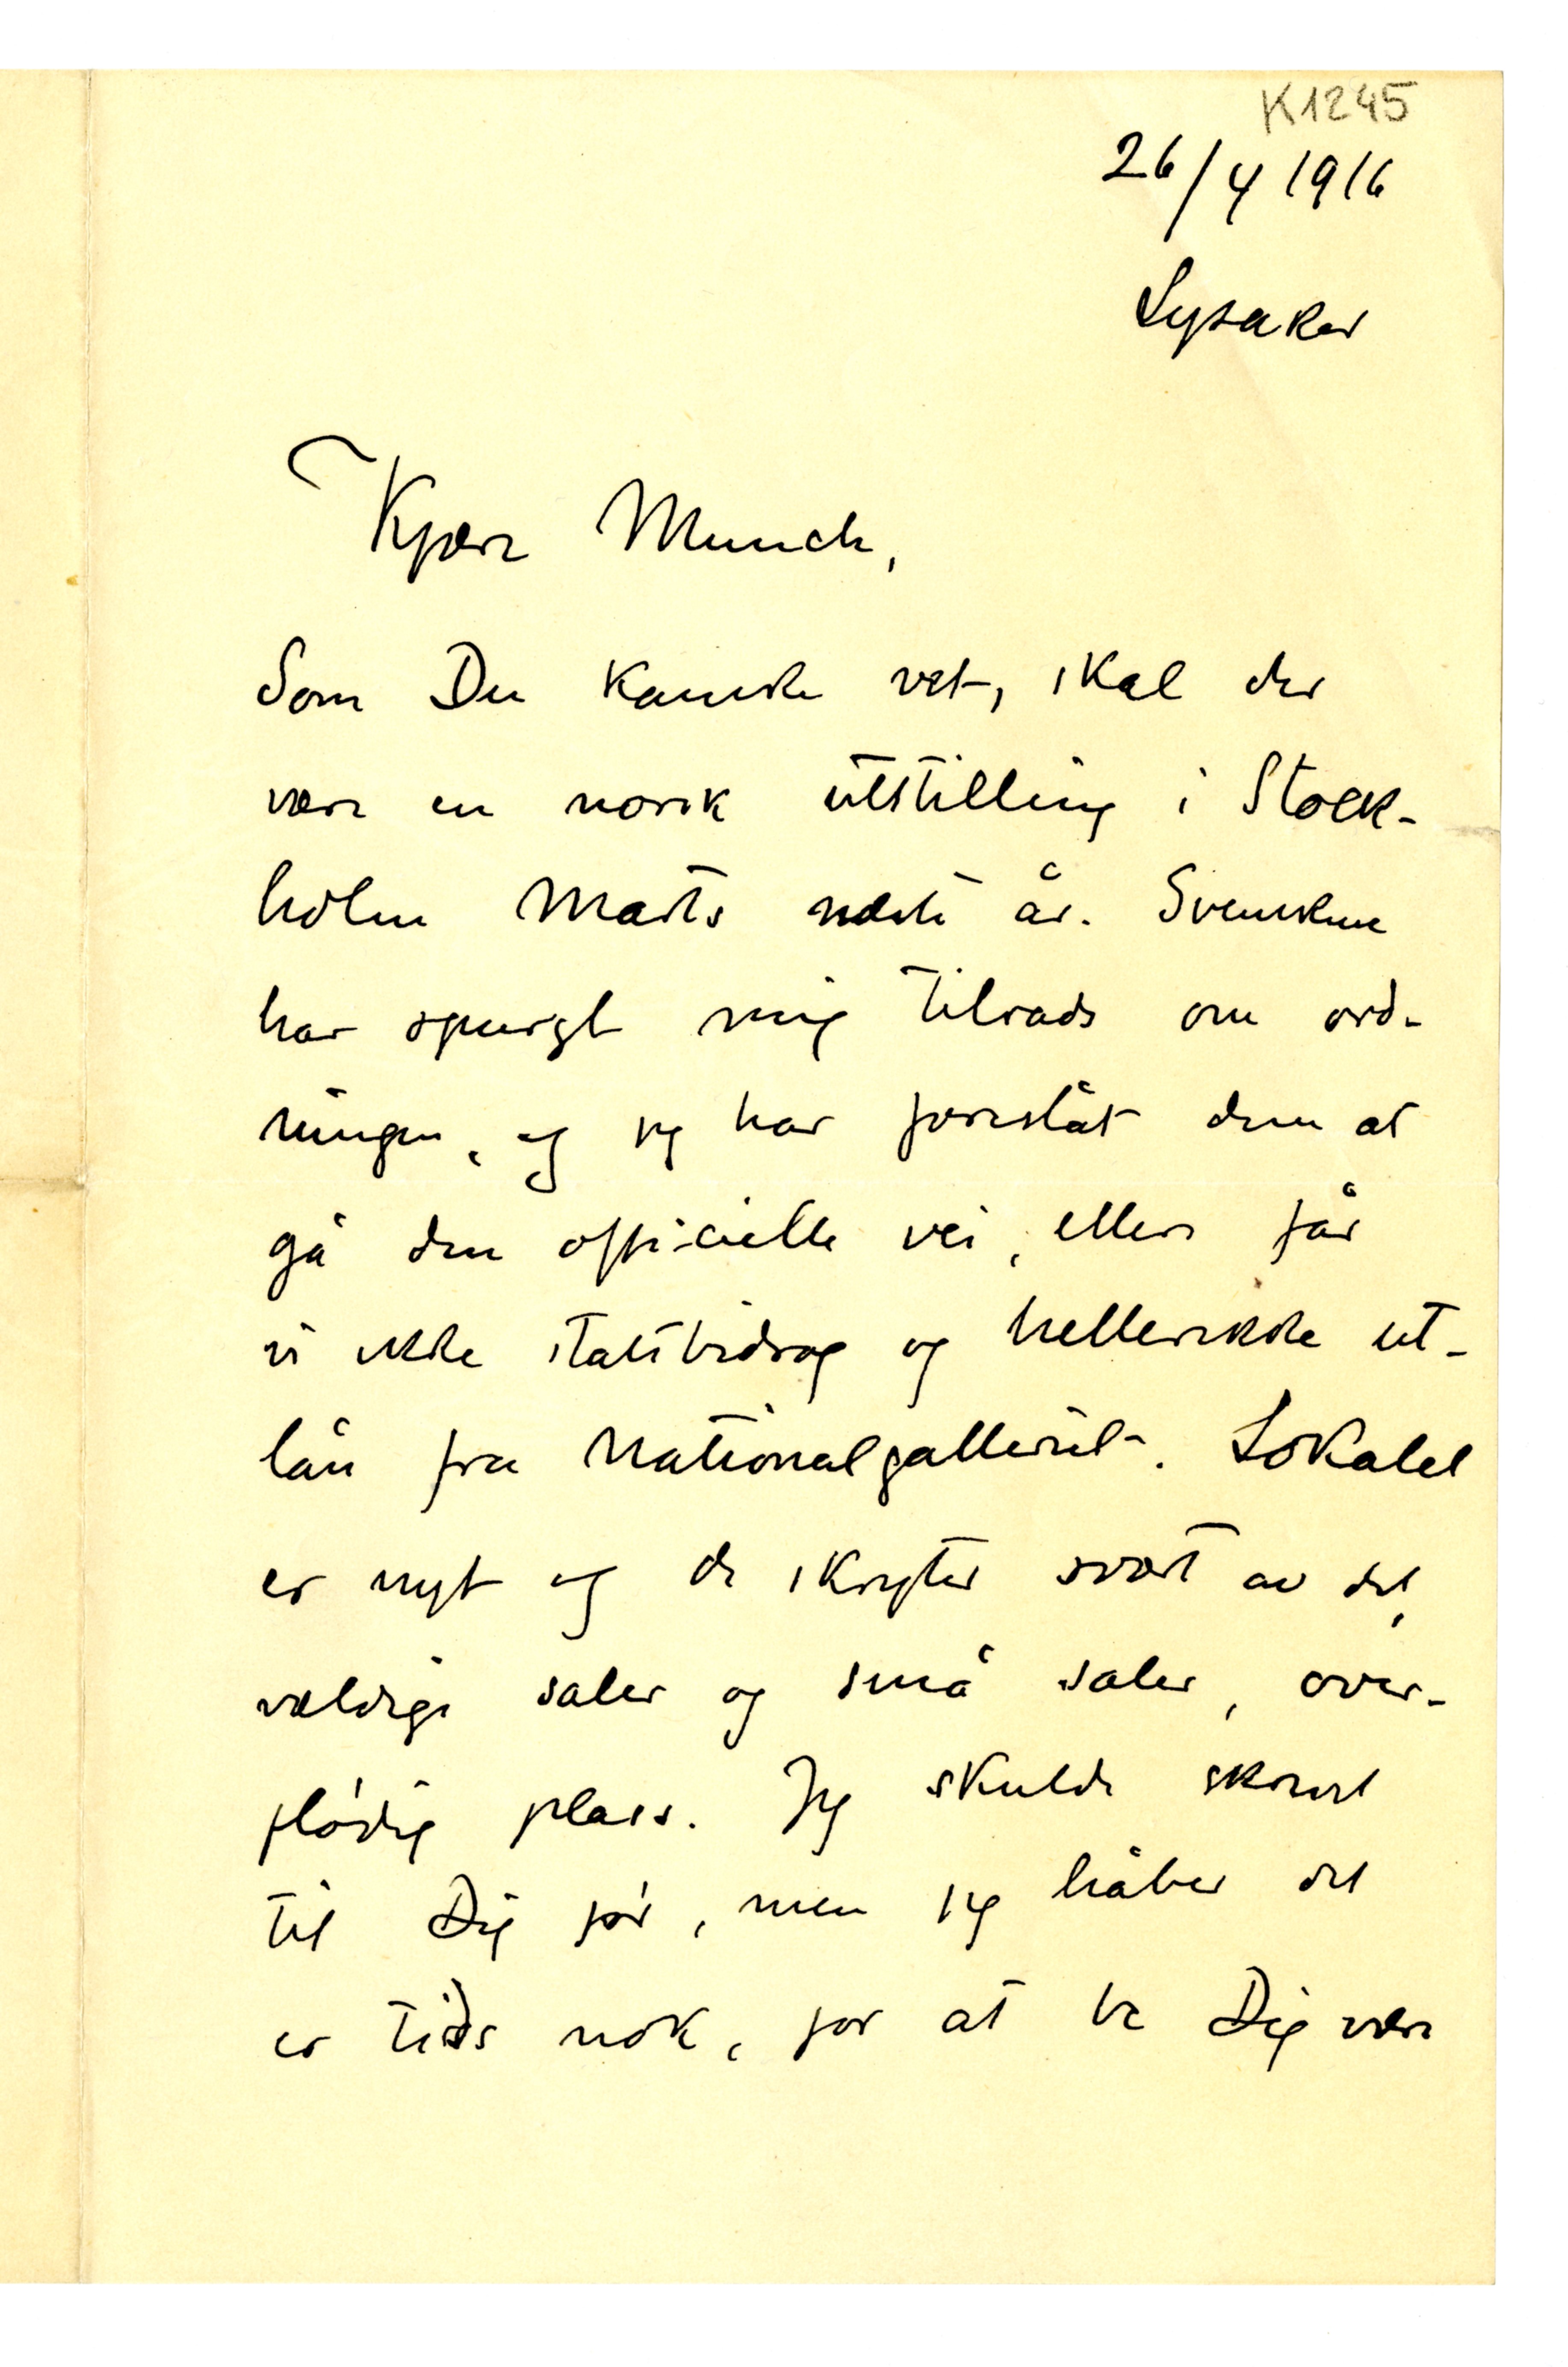 K1245
26/4 1916
Lysaker
Kjære Munch,
Som Du kanske vet, skal der
være en norsk utstilling i Stock-
holm Marts næste år. Svenskene
har spurgt mig tilrads om ord-
ningen, og jeg har foreslåt dem at
gå den officielle vei, ellers får
vi ikke statsbidrag og hellerikke ut-
lån fra Nationalgalleriet. Lokalet
er nyt og de skryter svært av det,
vældige saler og små saler, over-
flødig plass. Jeg skulde skrevet
til Dig før, men jeg håber det
er tids nok, for at be Dig være